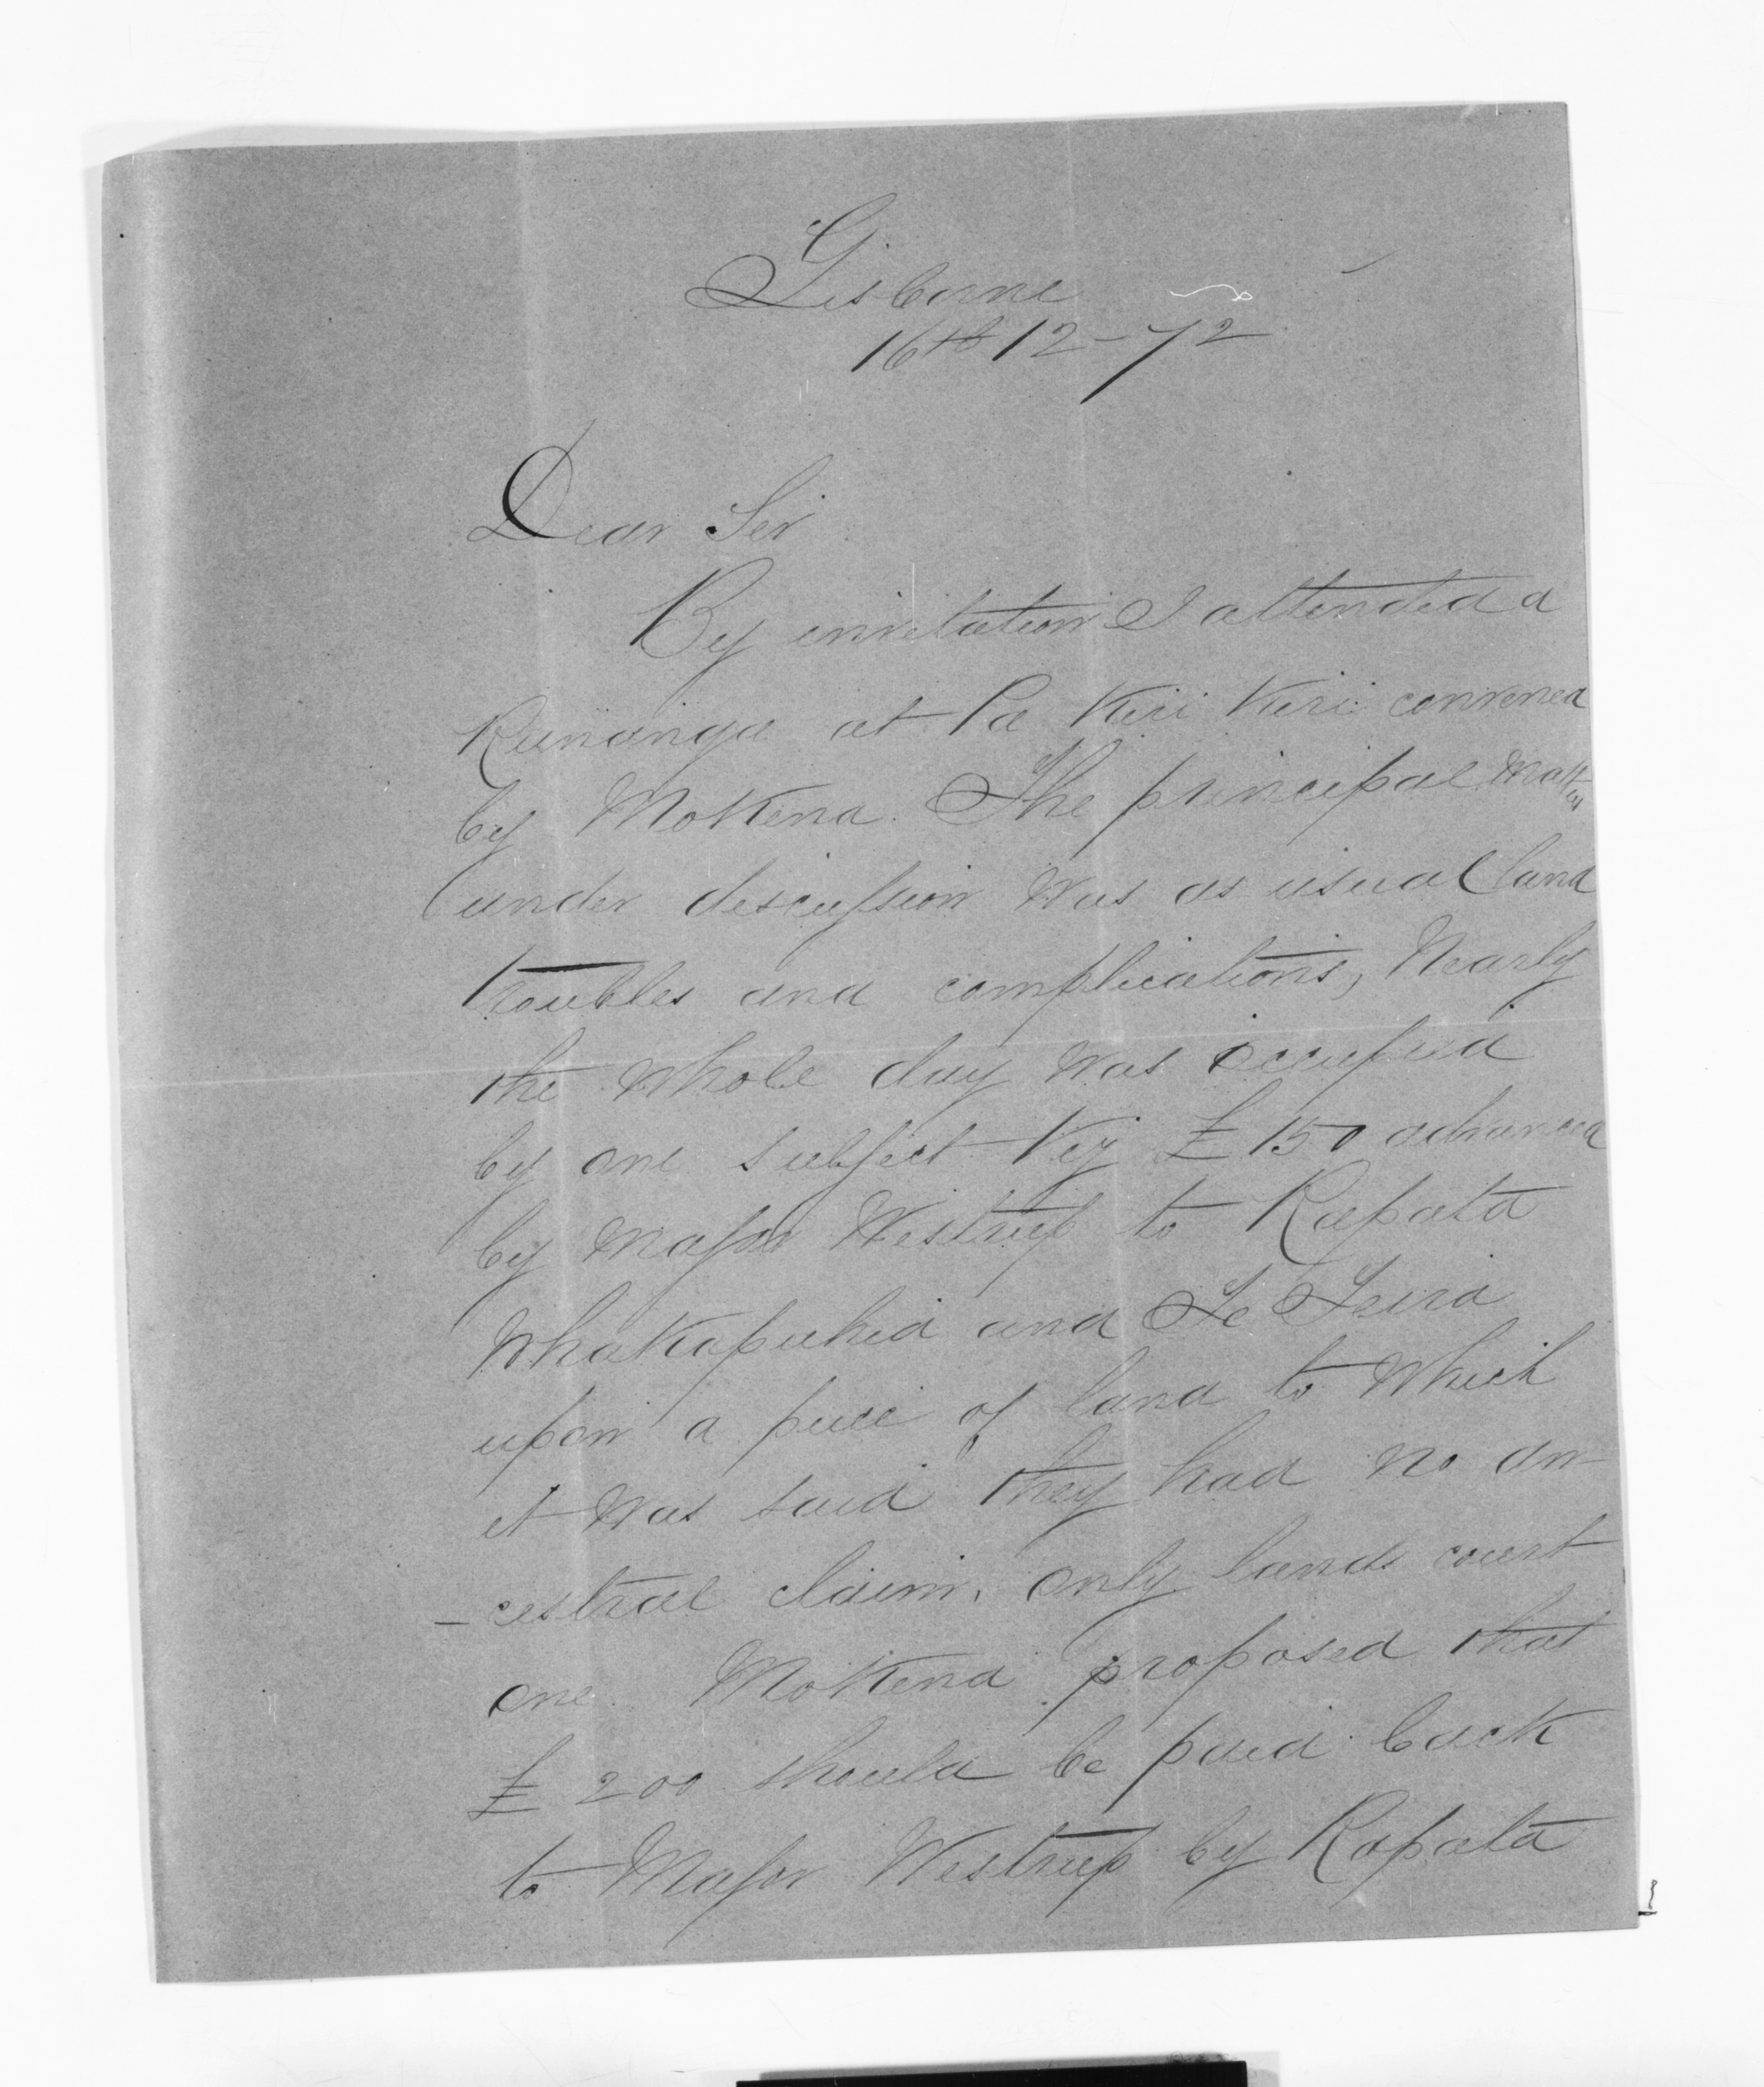 Gisborne
16th 12-72
Dear Sir
By invitation I attended a
Runanga at Pa Kiri Kiri convened
by Mokena. The principal matter
under discussion was as usual land
troubles and complications, Nearly
the whole day was occupied
by one subject Viz £150 advanced
by Major Westrup to Rapata
Whakapuhia and Te Teira
upon a piece of land to which
it was said they had no an-
-cestral claim, only lands court
one. Mokena proposed that
£200 should be paid back
to Major Westrup by Rapata